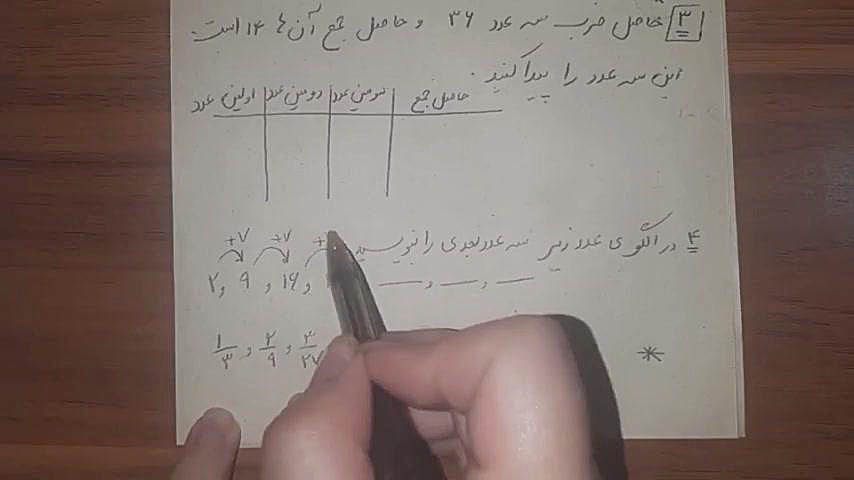 ۳ حاصل ضرب سه عدد ۳۶ و حاصل جمع آن ها ۱۴ است.
این سه عدد را پیدا کنید.
اولین عدد دومین عدد سومین عدد حاصل جمع
۴ در الگوی عدد زیر سه عدد بعدی را بنویسید
+۷ +۷ +
۲, ۹, ۱۶, __, __, __
۱/۳, ۲/۹, ۳/۲۷
*